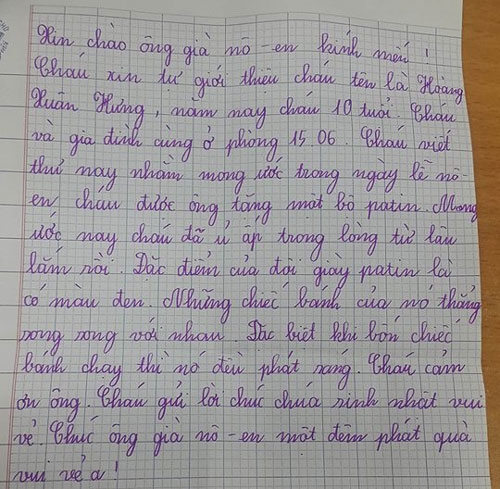 Xin chào ông già nô-en kính mến!
Cháu xin tự giới thiệu cháu tên là Hoàng
Xuân Hưng, năm nay cháu 10 tuổi. Cháu
và gia đình cùng ở phòng 15 06. Cháu viết
thư này nhằm mong ước trong ngày lễ nô-
en cháu được ông tặng một bộ patin. Mong
ước này cháu đã ủ ấp trong lòng từ lâu
lắm rồi. Đặc điểm của đôi giày patin là
có màu đen. Những chiếc bánh của nó thẳng
song song với nhau. Đặc biệt khi bốn chiếc
bánh chạy thì nó đều phát sáng. Cháu cảm
ơn ông. Cháu gửi lời chúc chúa sinh nhật vui
vẻ. Chúc ông già nô-en một đêm phát quà
vui vẻ ạ!